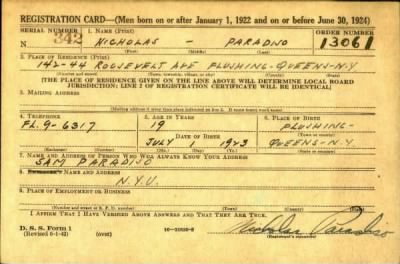 REGISTRATION CARD—(Men born on or after January 1, 1922 and on or before June 30, 1924)
SERIAL NUMBER 1. NAME (Print) ORDER NUMBER
N 342 NICHOLAS - PARADISO 13061
(First) (Middle) (Last)
2. PLACE OF RESIDENCE (Print)
142-44 ROOSEVELT AVE FLUSHING-QUEENS-N.Y
(Number and street) (Town, township, village, or city) (County) (State)
[THE PLACE OF RESIDENCE GIVEN ON THE LINE ABOVE WILL DETERMINE LOCAL BOARD
JURISDICTION; LINE 2 OF REGISTRATION CERTIFICATE WILL BE IDENTICAL]
3. MAILING ADDRESS
4. TELEPHONE 5. AGE IN YEARS 6. PLACE OF BIRTH
FL.9-6317 19 FLUSHING-
DATE OF BIRTH
JULY 1 1923 QUEENS-N.Y.
(Exchange) (Number) (Mo.) (Day) (Yr.) (State or country)
7. NAME AND ADDRESS OF PERSON WHO WILL ALWAYS KNOW YOUR ADDRESS
SAM PARADISO
8. EMPLOYER'S NAME AND ADDRESS
N.Y.U.
9. PLACE OF EMPLOYMENT OR BUSINESS
(Number and street or R. F. D. number) (Town) (County) (State)
I AFFIRM THAT I HAVE VERIFIED ABOVE ANSWERS AND THAT THEY ARE TRUE.
D. S. S. Form 1
(Revised 6-1-42) (over) Nicholas Paradiso
(Registrant's signature)